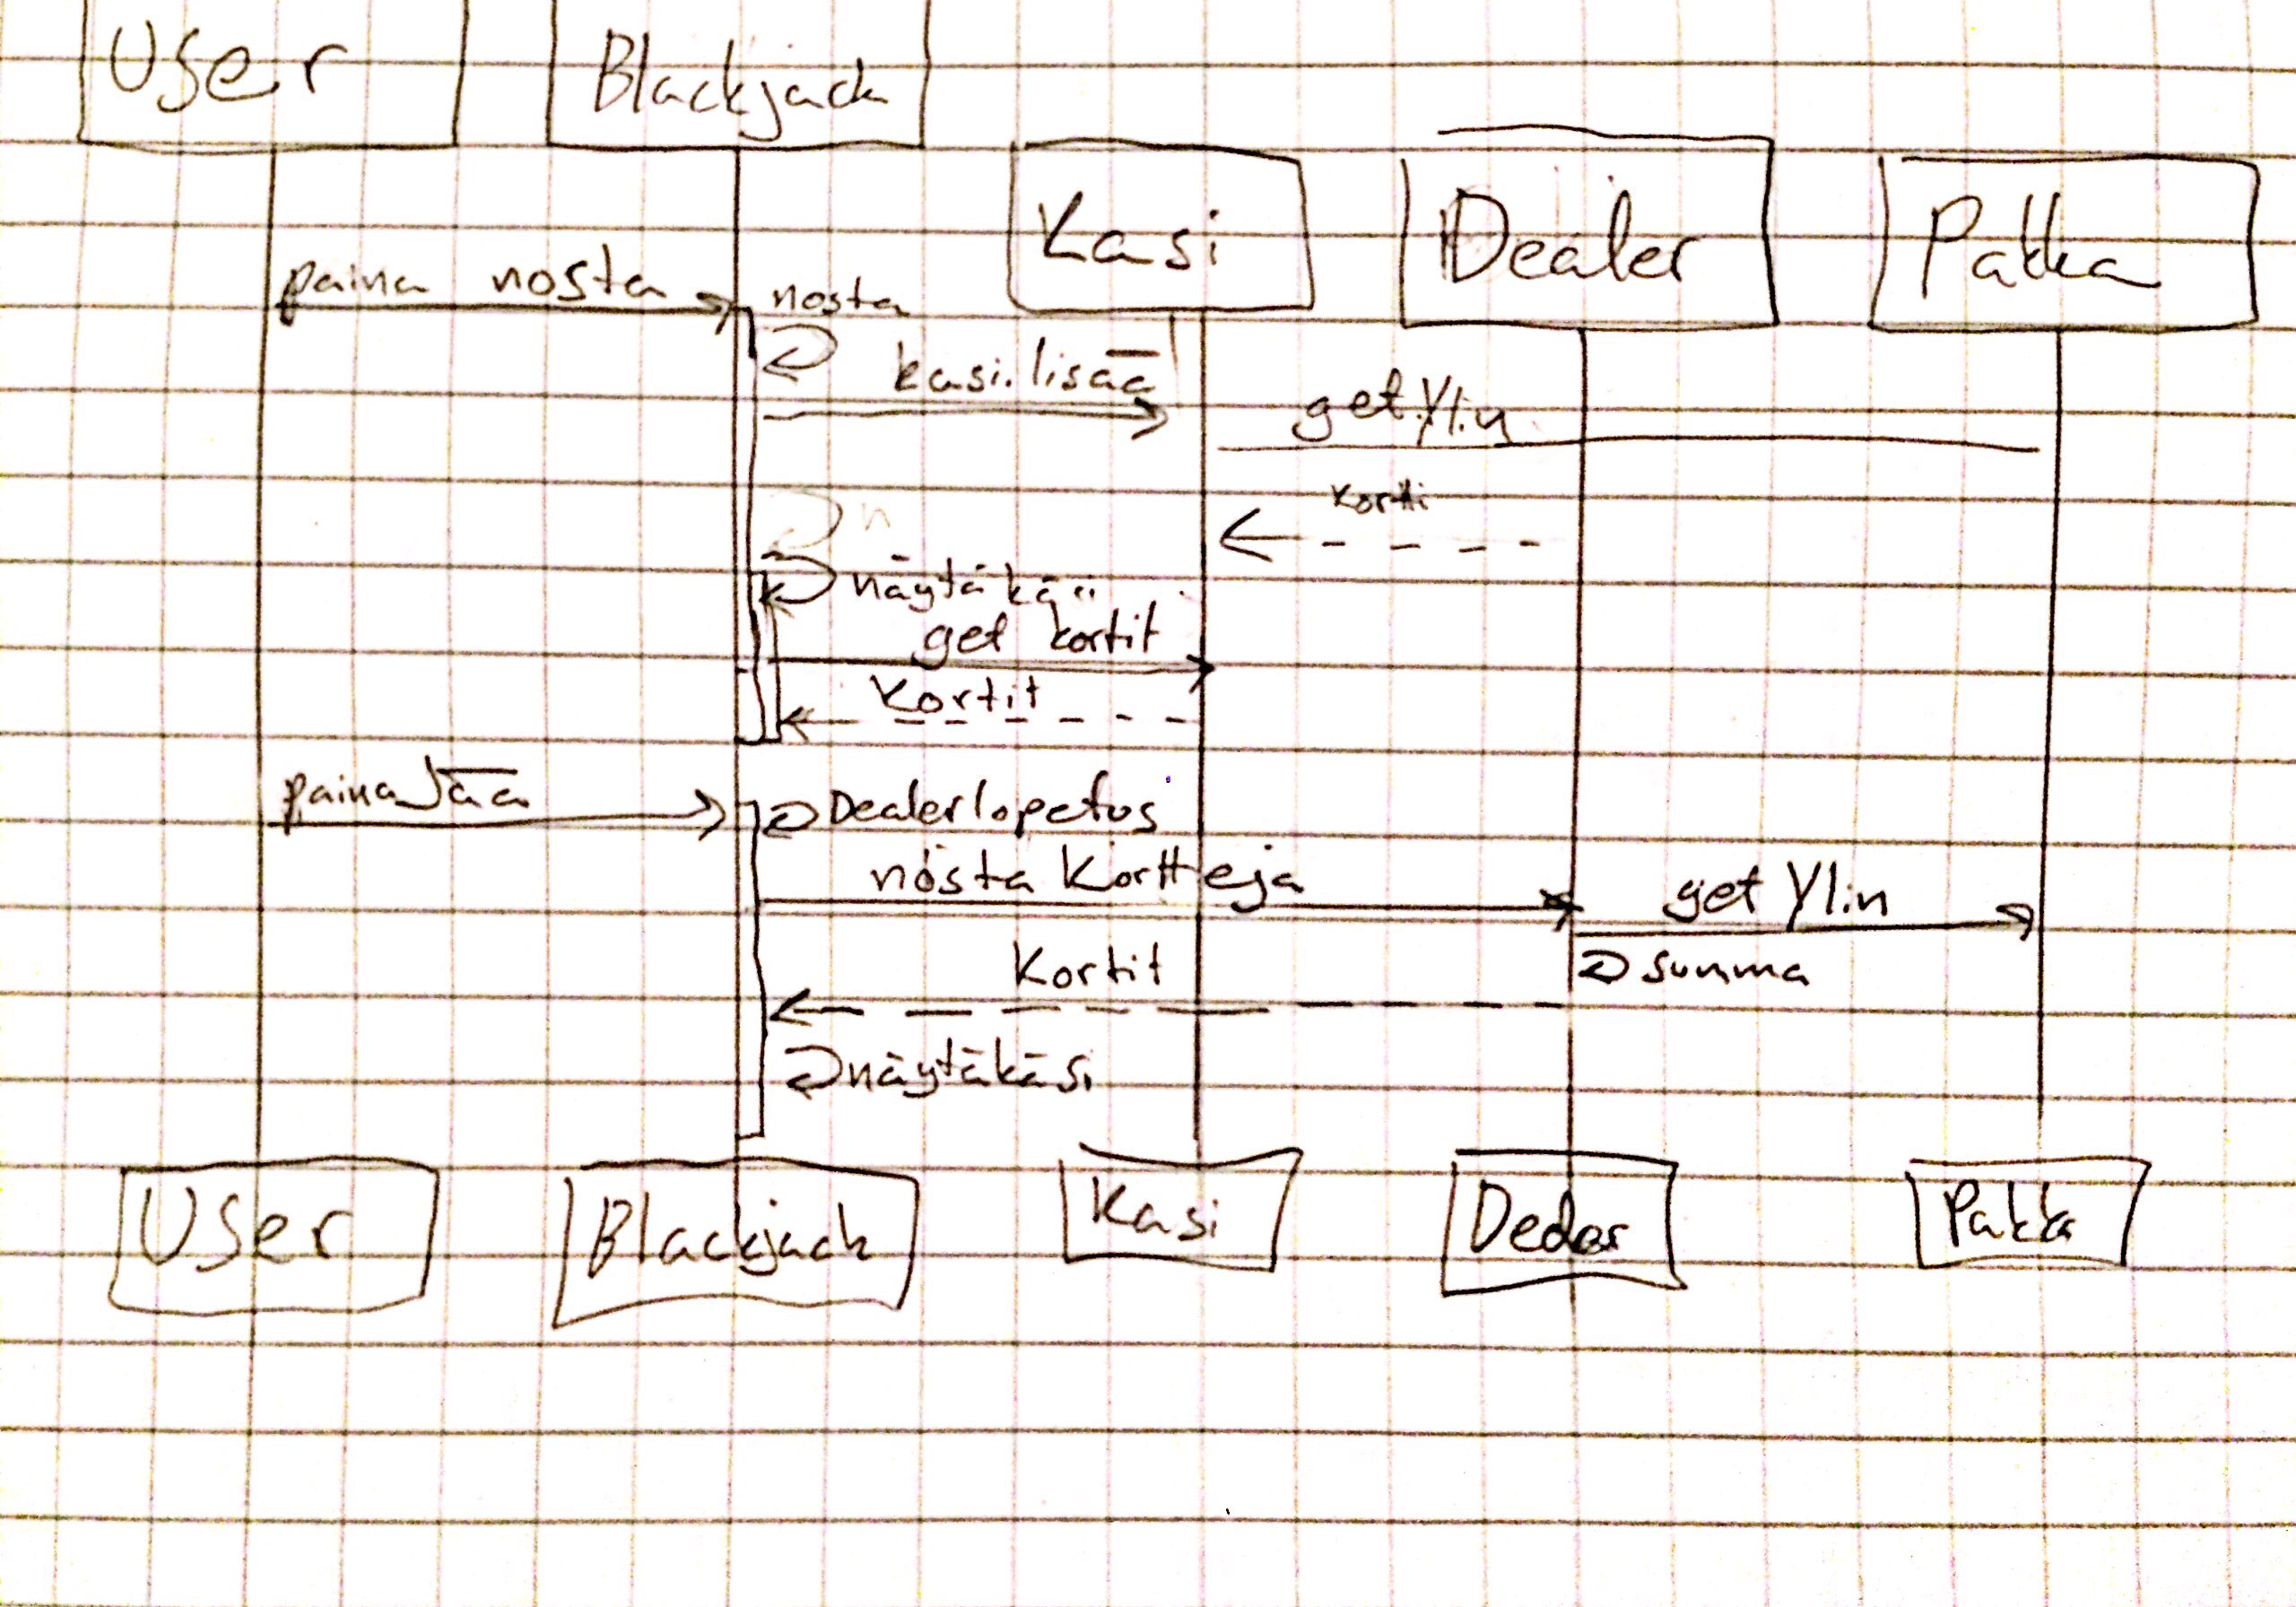 User
Blackjack
Kasi
Dealer
Pakka
paina nosta
nosta
kasi.lisää
getYlin
kortti
n
näytä käsi
get kortit
Kortit
paina Jää
Dealerlopetus
nosta Kortteja
get Ylin
summa
Kortit
näytäkäsi
User
Blackjack
Kasi
Dedar
Pakka